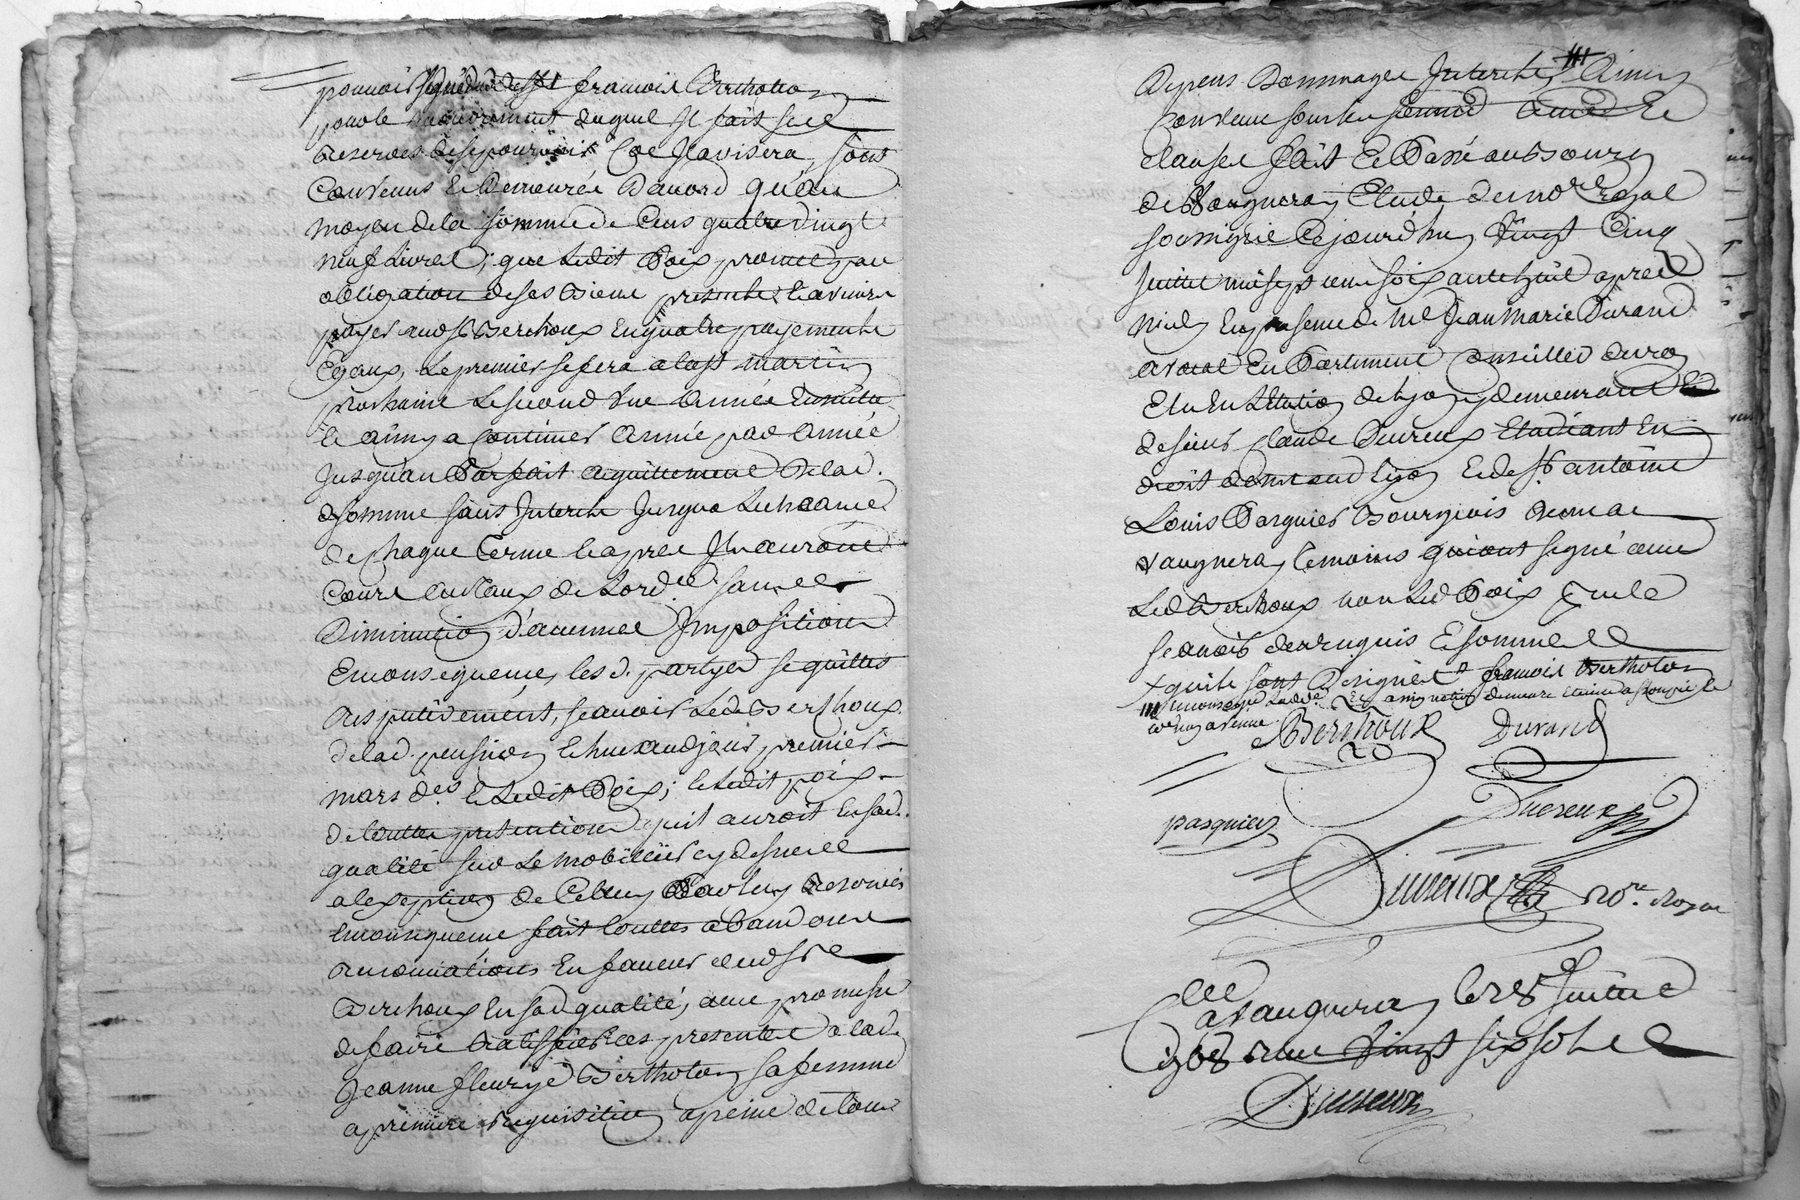 pouvoir françois Bertholon
pour le duquel il fait
reserves de se pourvoir Comme Il avisera, sont
Convenus Et Demeurés D'acord qu'au
moyen de la somme de Cens quatre vingt
neuf Livres; que Ledit Poix promet par
obligation de ses Biens presents & avenirs
payer audsr Berthoux En quatre payements
Egaux, Le premier se fera a la st martin
prochaine Le second Une année Ensuitte
Et ainsy a Continuer Année par Année
Jusqu'au Parfait aquittement De lad.
somme sans Interets Jusqu'a Lecheance
de chaque Terme Et apres Ils auront
Cours au Taux de Lord.ce sans
Diminution d'aucunes Impositions
En consequence, les d. partyes se quittes
respectivement, sçavoir Led. Berthoux
de lad. pension Echue audjour premier
mars d.er Et Ledit Poix; & ledit poix
de touttes pretentions qu'il auroit En sad.
qualité sur Le mobilier cy dessus
a l'exeption de Celluy Par luy Reservés
En consequence fait touttes abandons
renonciations En faveur dudsr
Berthoux En sad qualité, avec promesse
de faire Ratiffier Ces presentes a lad.
Jeanne fleurye Bertholon sa femme
a premiere requisition a peine de tous
Depens Dommages Interets /// Ainsy
Convenu sous les
clauses fait Et Passé au Bourg
de Vaugneray Etude du nore Royal
soussigné Cejourd'huy Vingt Cinq
Juillet mil sept cens soixante huit apres
midy En presence de Me Jean Marie Durand
avocat En Parlement Conseiller du roy
Elu En L'Election de Lyon y demeurant Et
de sieur claude Ducreux Etudiant En
droit demt aud Lyon Et de sr antoine
Louis Pasquier Bourgeois dem. a
Vaugneray temoins qui ont signé avec
Led Berthoux non Led Poix
sçavoir de ce requis Et sommé
françois Bertholon
/// En conseq.ce
Berthoux Durand
pasquier Ducreux
Ducreux nore. Royal
Clle
a Vaugneray le 28 Juillet
1768 recu Vingt six sols
Ducreux